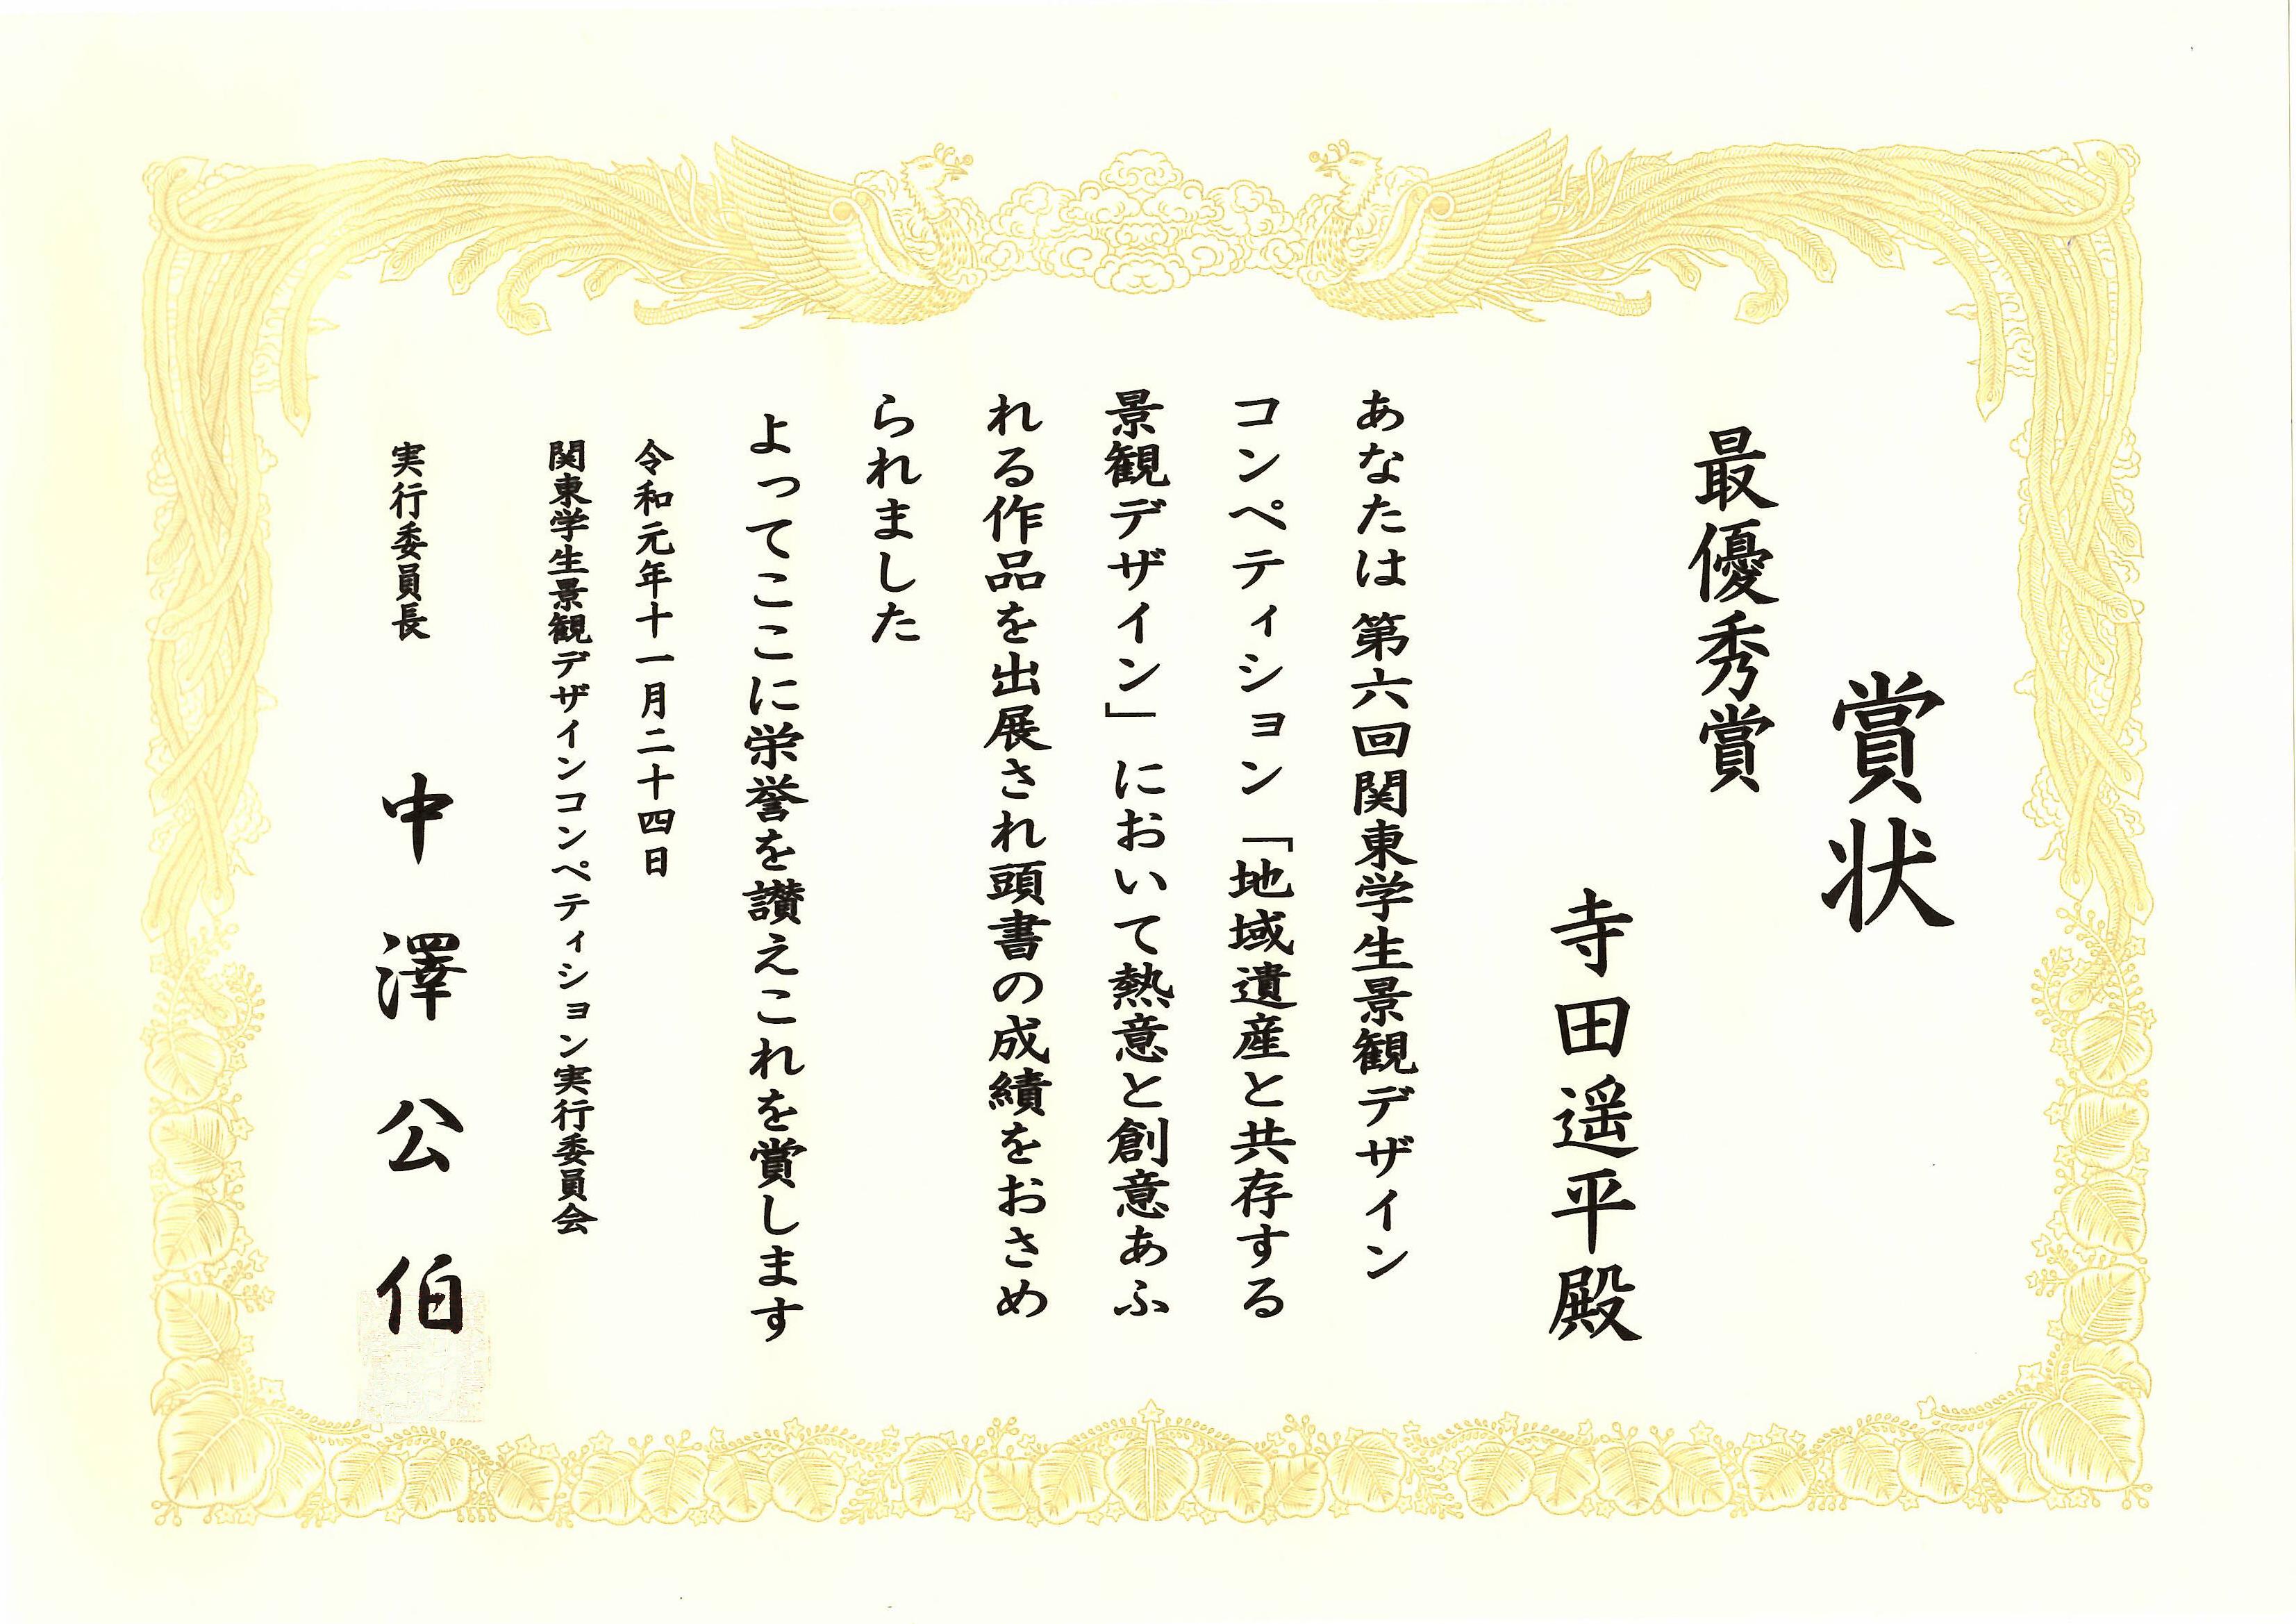 賞状
最優秀賞
寺田遥平殿
あなたは 第六回関東学生景観デザイン
コンペティション「地域遺産と共存する
景観デザイン」において熱意と創意あふ
れる作品を出展され頭書の成績をおさめ
られました
よってここに栄誉を讃えこれを賞します
令和元年十一月二十四日
関東学生景観デザインコンペティション実行委員会
実行委員長 中澤公伯